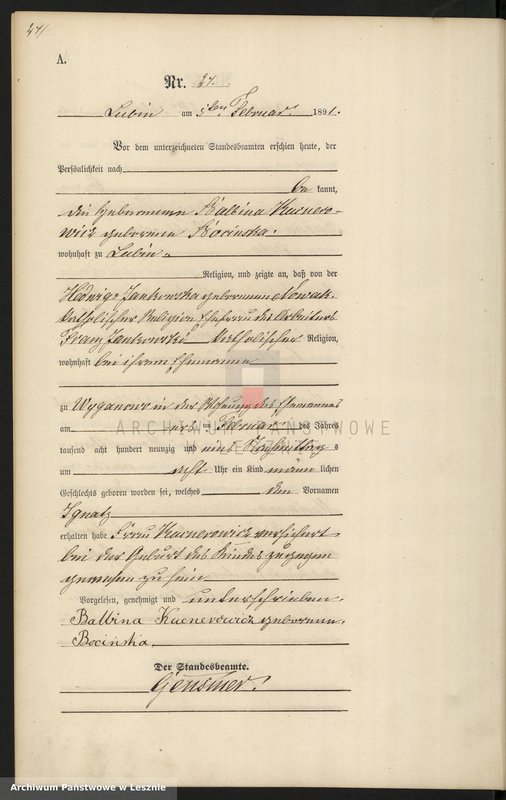 A.
Nr. 27.
Lubin am 5ten Februar 1891.
Vor dem unterzeichneten Standesbeamten erschien heute, der
Persönlichkeit nach
be kannt,
die Hebeamme Balbina Kucnero-
wicz geborene Bocinska.
wohnhaft zu Lubin
Religion, und zeigte an, daß von der
Hedwig Jankowska geborenen Nowak
katholischer Religion Ehefrau des Arbeiters
Franz Jankowski katholischer Religion,
wohnhaft bei ihrem Ehemanne
zu Wyganowo in der Wohnung des Ehemannes
am ten Februar des Jahres
tausend acht hundert neunzig und eins Nachmittag s
um acht Uhr ein Kind männ lichen
Geschlechts geboren worden sei, welches den Vornamen
Ignatz
erhalten habe Frau Kucnerowicz versichert
bei der Geburt des Kindes zugegen
gewesen zu sein
Vorgelesen, genehmigt und unterschrieben.
Balbina Kucnerowicz geborene
Bocińska.
Der Standesbeamte.
ARCHIWUM PAŃSTWOWE
Archiwum Państwowe w Lesznie